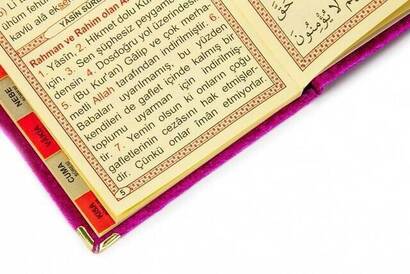 YÂSİN SÛRE
Rahman ve Rahim olan Al
1. Yâsîn. 2. Hikmet dolu Kur
için, 3. Sen şüphesiz peygam
densin. 4. Dosdoğru yol üzerindesin.
5. (Bu Kur'an) Gâlip ve çok merha-
metli Allah tarafından indirilmiştir. 6.
Babaları uyarılmamış, bu yüzden
kendileri de gaflet içinde kalmış bir
toplumu uyarman için indirilmiş-
tir. 7. Yemin olsun ki onların çoğu
gafletlerinin cezâsını hak etmişler-
dir. Çünkü onlar îmân etmiyorlar.
5
NEBE
VÂKIA
CUMA
KISA
لَا يُؤْمِنُونَ